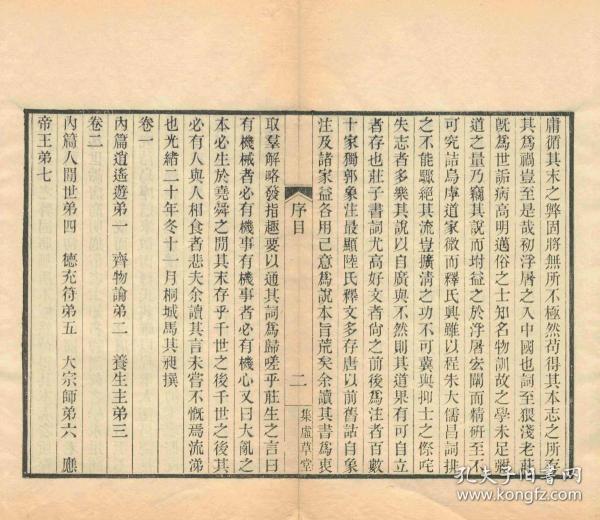 庸循其末之弊固將無所不極然苟得其本志之所存
其爲禍豈至是哉初浮屠之入中國也詞至猥淺老莊
旣爲世詬病高明邁俗之士知名物訓故之學未足釋
道之量乃竊其說而坿益之於浮屠宏闊而精硏至不
可究詰烏虖道家微而釋氏興雖以程朱大儒昌詞排
之不能驟絕其流豈擴淸之功不可冀與抑士之傺侘
失志者多樂其說以自廣與不然則其道果有可自立
者存也莊子書詞尤高好文者尙之前後爲注者百數
十家獨郭象注最顯陸氏釋文多存唐以前舊詁自象
注及諸家益各用己意爲說本旨荒矣余讀其書爲衷
序目
二
集虛草堂
取羣解略發指趣要以通其詞爲歸嗟乎莊生之言曰
有機械者必有機事有機事者必有機心又曰大亂之
本必生於堯舜之閒其末存乎千世之後千世之後其
必有人與人相食者悲夫余讀其言未嘗不慨焉流涕
也光緒二十年冬十一月桐城馬其昶撰
卷一
內篇逍遙遊弟一 齊物論弟二 養生主弟三
卷二
內篇人閒世弟四 德充符弟五 大宗師弟六 應
帝王弟七
孔夫子旧书网
www.kongfz.com